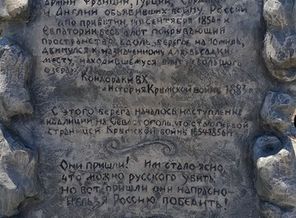 армий Франции, Турции,
и Англии объявивших войну России
Евпатории весь флот покрывающий
пространство вдоль берегов на 10 миль,
двинулся к назначенному для высадки
месту, находившемуся близ небольшого
озера.
Кондораки В.Х.
«История Крымской войны» 1883 г.
С этого берега началось наступление
коалиции на Севастополь, что стало первой
страницей Крымской войны 1854-1856 гг.
Они пришли! Им стало ясно,
что можно русского убить,
Но вот пришли они напрасно-
Нельзя Россию победить!